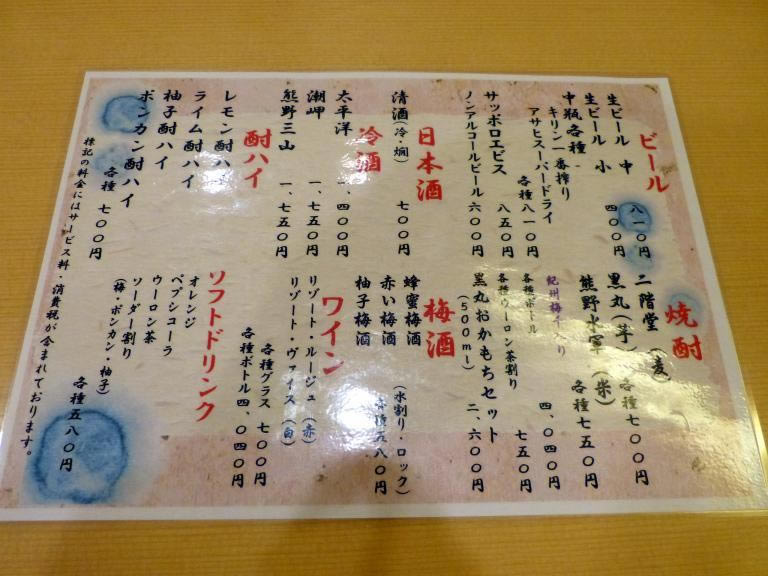 ビール
生ビール 中 八一〇円
生ビール 小 四〇〇円
中瓶各種
キリン一番搾り
アサヒスーパードライ
各種八一〇円
サッポロエビス 八五〇円
ノンアルコールビール 六〇〇円
日本酒
清酒(冷・燗) 七〇〇円
冷酒
太平洋 一、四〇〇円
潮岬 一、七五〇円
熊野三山 一、七五〇円
酎ハイ
レモン酎ハイ
ライム酎ハイ
柚子酎ハイ
ポンカン酎ハイ
各種 七〇〇円
焼酎
二階堂(麦)
黒丸(芋) 各種 七〇〇円
熊野水軍(米) 各種 七五〇円
紀州梅干入り
各種ボトル 四、〇四〇円
各種ウーロン茶割り 七五〇円
黒丸おかもちセット 二、六〇〇円
(500ml)
梅酒
蜂蜜梅酒 (水割り・ロック)
赤い梅酒 各種五八〇円
柚子梅酒
ワイン
リゾート・ルージュ(赤)
リゾート・ヴァイス(白)
各種グラス 七〇〇円
各種ボトル四、〇四〇円
ソフトドリンク
オレンジ
ペプシコーラ
ウーロン茶
ソーダー割り
(梅・ポンカン・柚子)
各種五八〇円
標記の料金にはサービス料・消費税が含まれております。